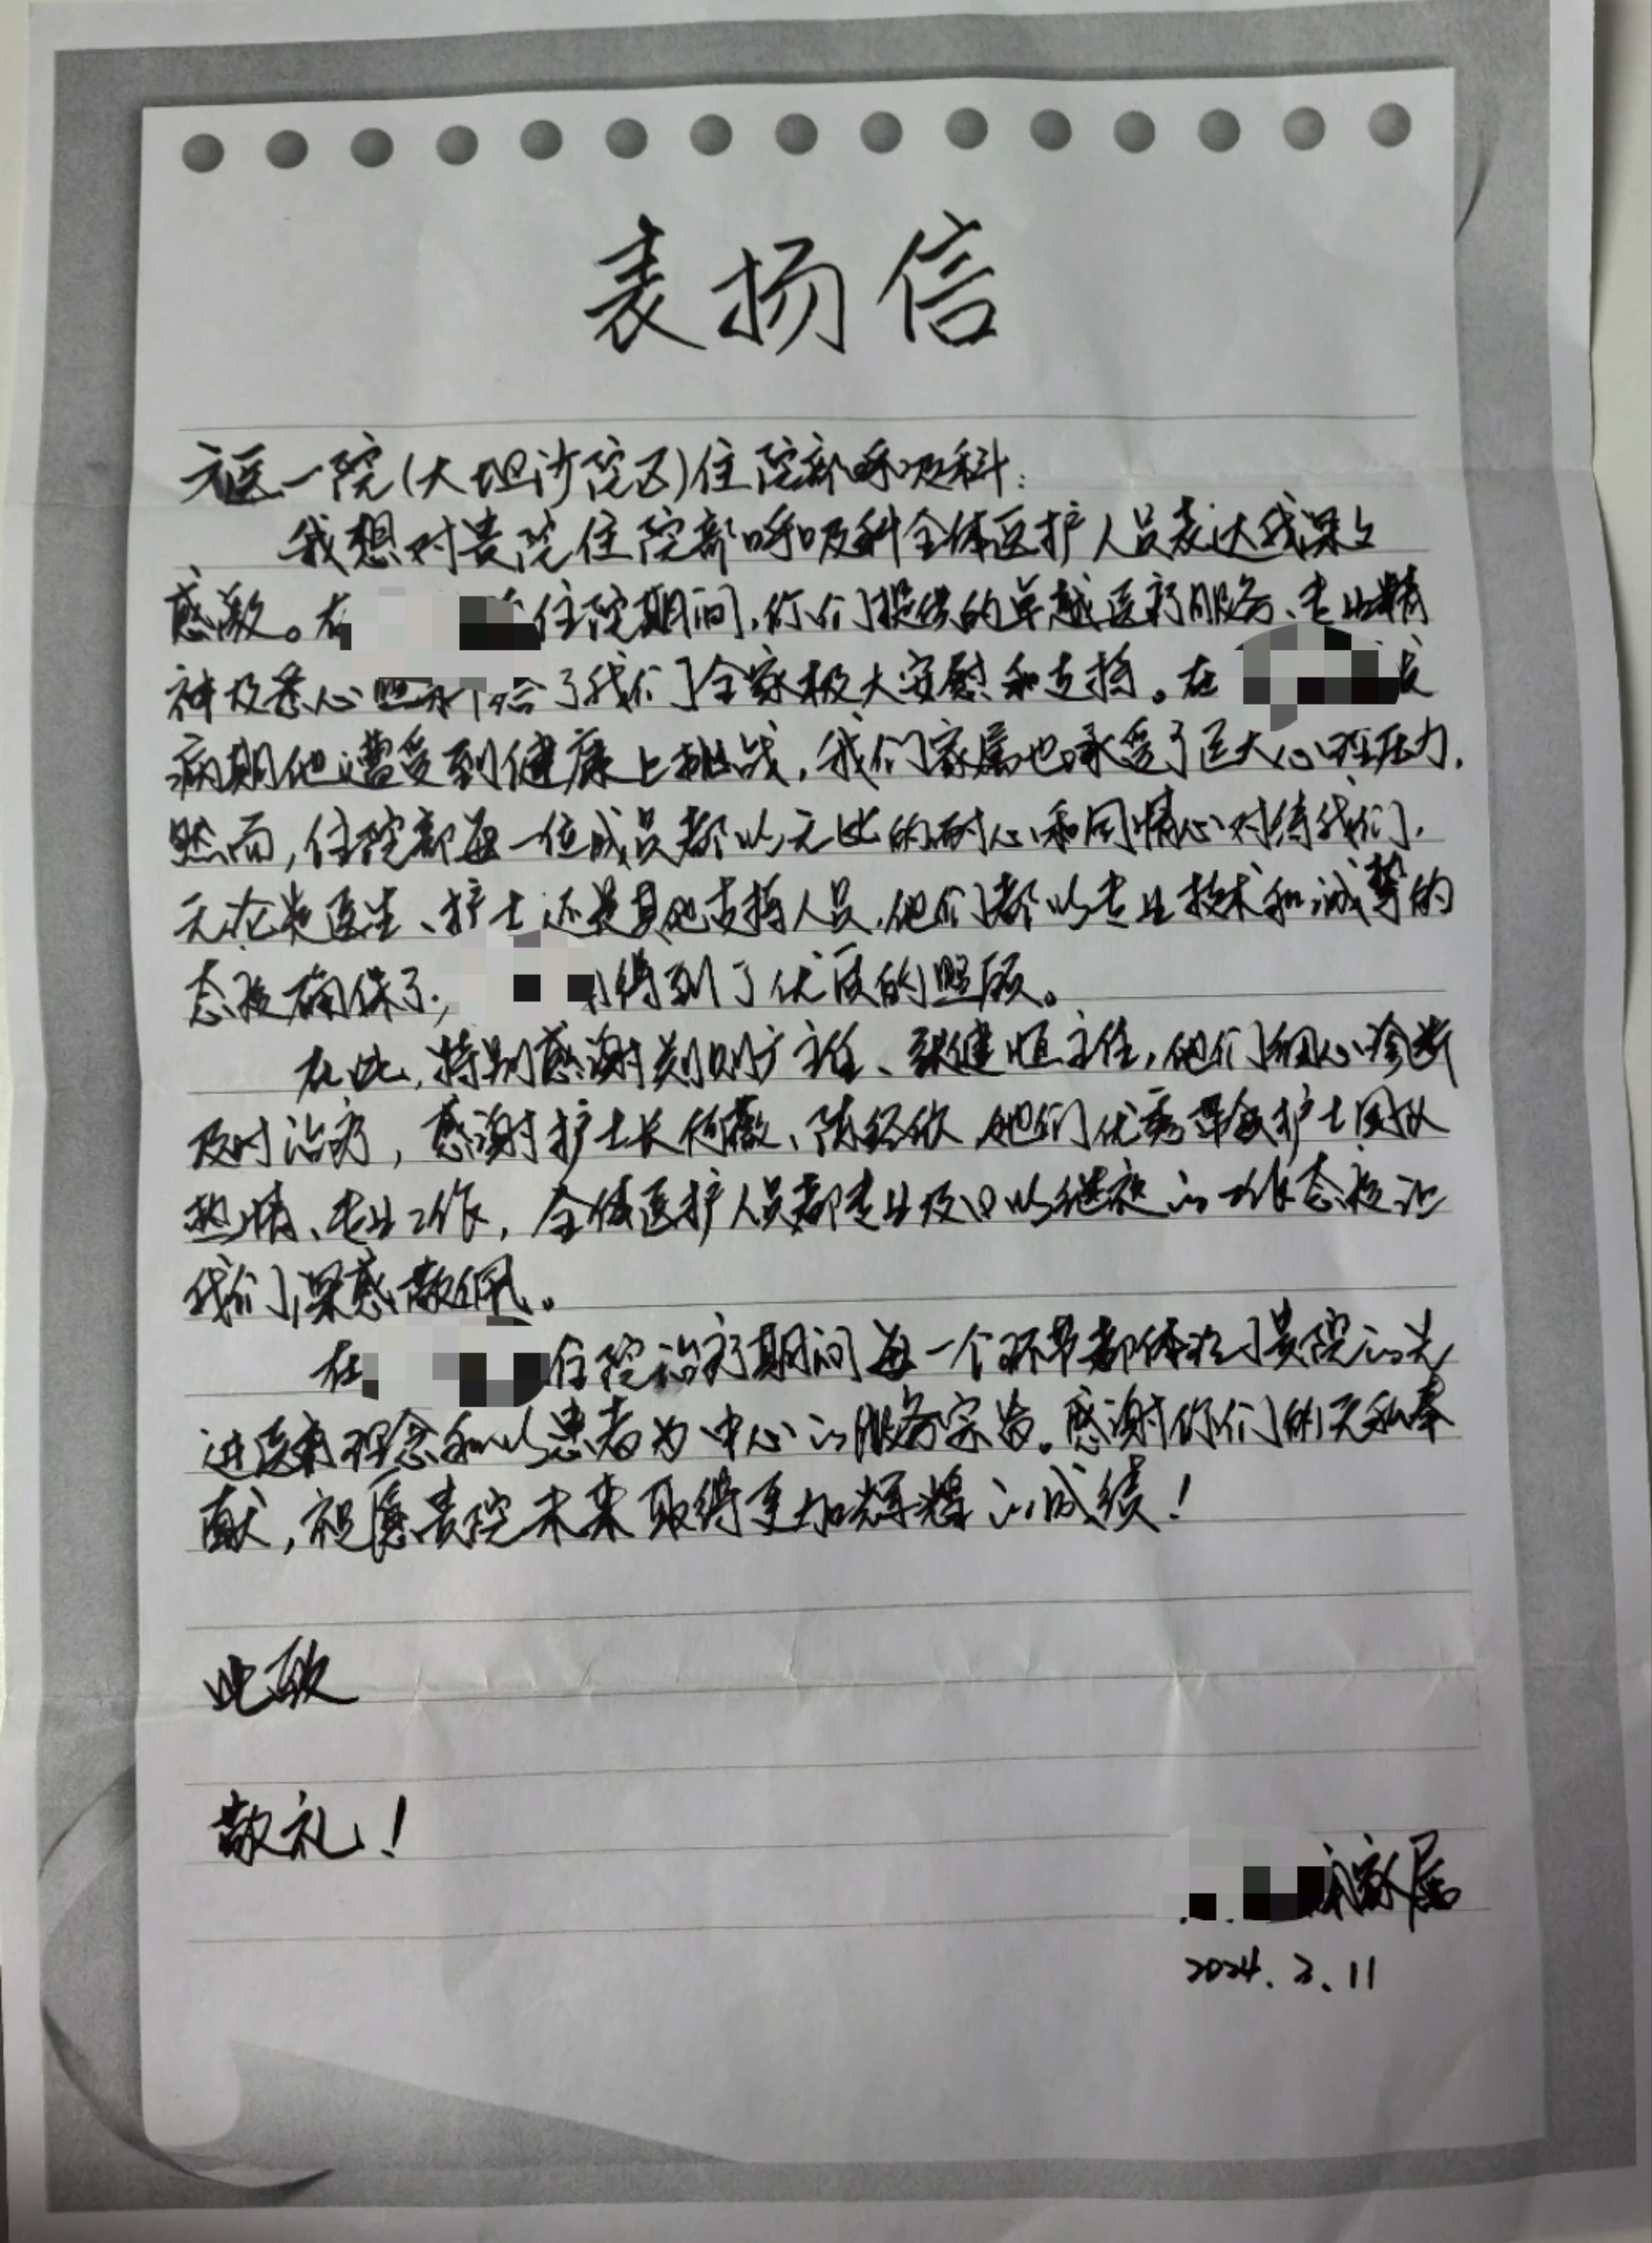 表扬信
广医一院(大坦沙院区)住院部呼吸科:
我想对贵院住院部呼吸科全体医护人员表达我深之
感激。在住院期间,你们提供的卓越医疗服务、专业精
神及悉心照料给了我们全家极大安慰和支持。在发
病期他遭受到健康上挑战,我们家属也承受了巨大心理压力,
然而,住院部每一位成员都以无比的耐心和同情心对待我们,
无论是医生、护士还是其他支持人员,他们都以专业技术和诚挚的
态度确保了得到了优质的照顾。
在此,特别感谢刘则广主任、张健恒主任,他们细心诊断
及时治疗,感谢护士长何薇、陈欣,她们优秀带领护士团队
热情、专业工作,全体医护人员都专业及的工作态度让
我们深感敬佩。
在住院治疗期间每一个环节都体现了贵院的先
进医疗理念和以患者为中心的服务宗旨。感谢你们的无私奉
献,祝愿贵院未来取得更加辉煌的成绩!
此致
敬礼!
家属
2024.2.11